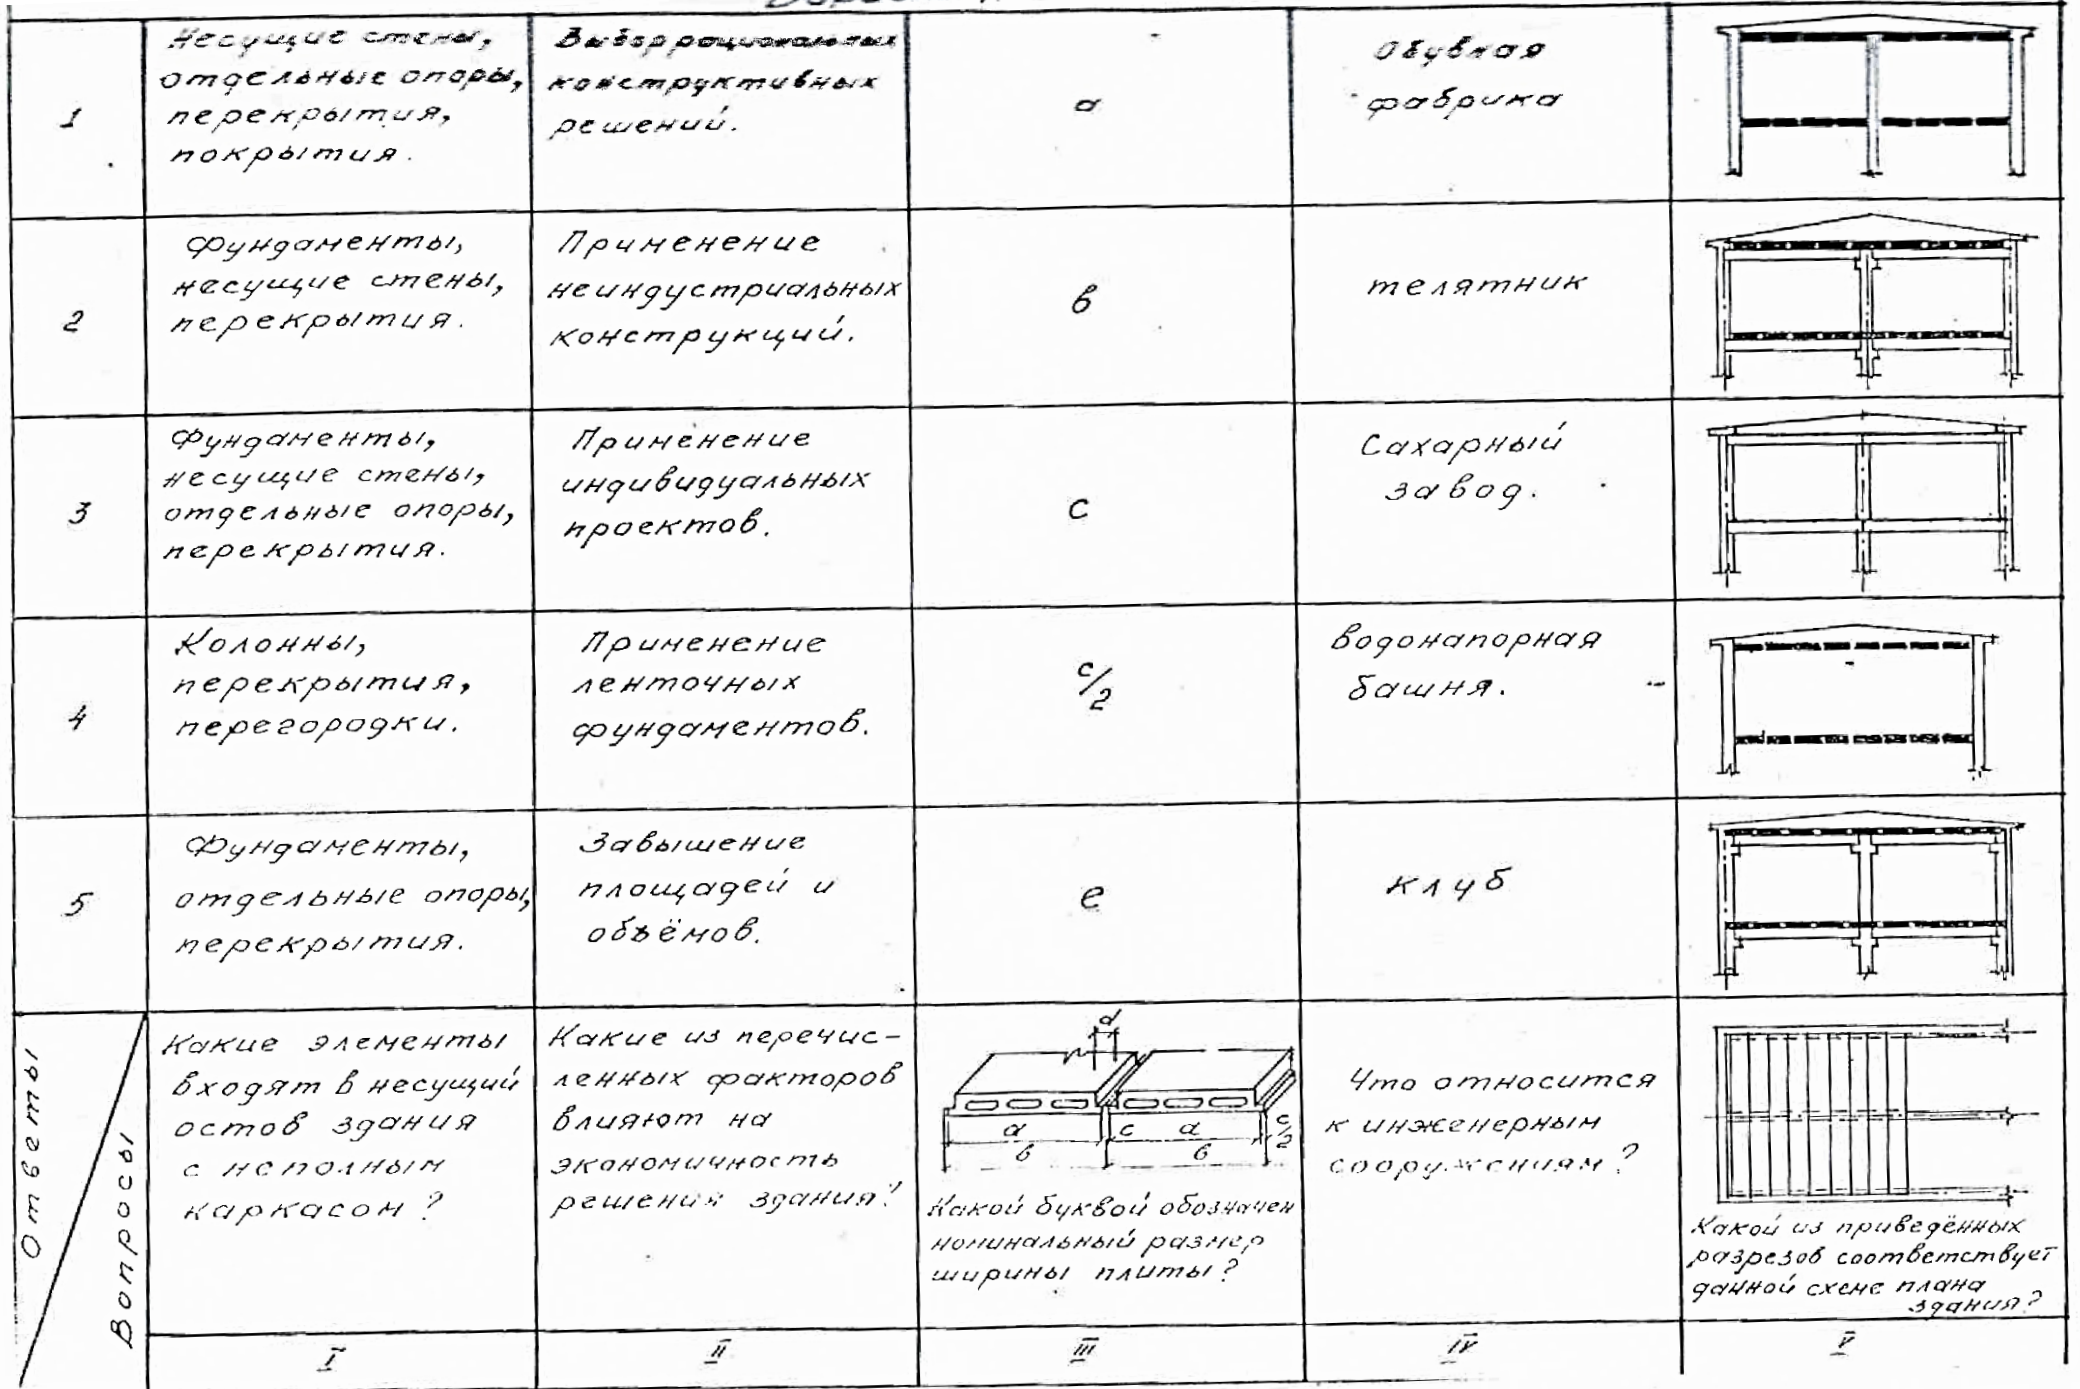 1
Несущие стены,
отдельные опоры,
перекрытия,
покрытия.
Выбор рациональных
конструктивных
решений.
а
Обувная
фабрика
2
Фундаменты,
несущие стены,
перекрытия.
Применение
неиндустриальных
конструкций.
в
телятник
3
Фундаменты,
несущие стены,
отдельные опоры,
перекрытия.
Применение
индивидуальных
проектов.
с
Сахарный
завод.
4
Колонны,
перекрытия,
перегородки.
Применение
ленточных
фундаментов.
с/2
водонапорная
башня.
5
Фундаменты,
отдельные опоры,
перекрытия.
Завышение
площадей и
объёмов.
е
клуб
Ответы
Вопросы
Какие элементы
входят в несущий
остов здания
с неполным
каркасом?
Какие из перечис-
ленных факторов
влияют на
экономичность
решения здания?
d
а с а с/2
в в
Какой буквой обозначен
номинальный размер
ширины плиты?
Что относится
к инженерным
сооружениям?
Какой из приведённых
разрезов соответствует
данной схеме плана
здания?
I
II
III
IV
V